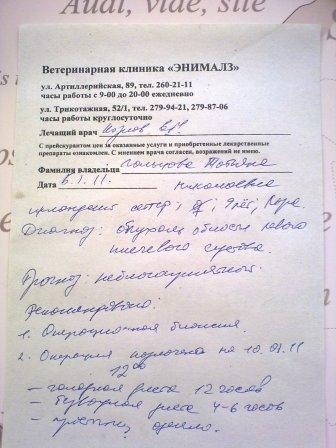 Audi, vide, sile
Ветеринарная клиника «ЭНИМАЛЗ»
ул. Артиллерийская, 89, тел. 260-21-11
часы работы с 9-00 до 20-00 ежедневно
ул. Трикотажная, 52/1, тел. 279-94-21, 279-87-06
часы работы круглосуточно
Лечащий врач
С прейскурантом цен за оказанные услуги и приобретенные лекарственные
препараты ознакомлен. С мнением врача согласен, возражений не имею.
Фамилия владельца Голикова Татьяна
Дата 6.1.11. Николаевна
ирландский сеттер; 9 лет, Лора.
Диагноз: опухоль области левого
плечевого сустава.
Прогноз: неблагоприятный.
Рекомендовано:
1. Операционная биопсия.
2. Операция назначена на 10.01.11
12 00
– голодная диета 12 часов
– безводная диета 4-6 часов
– простынь, одеяло.